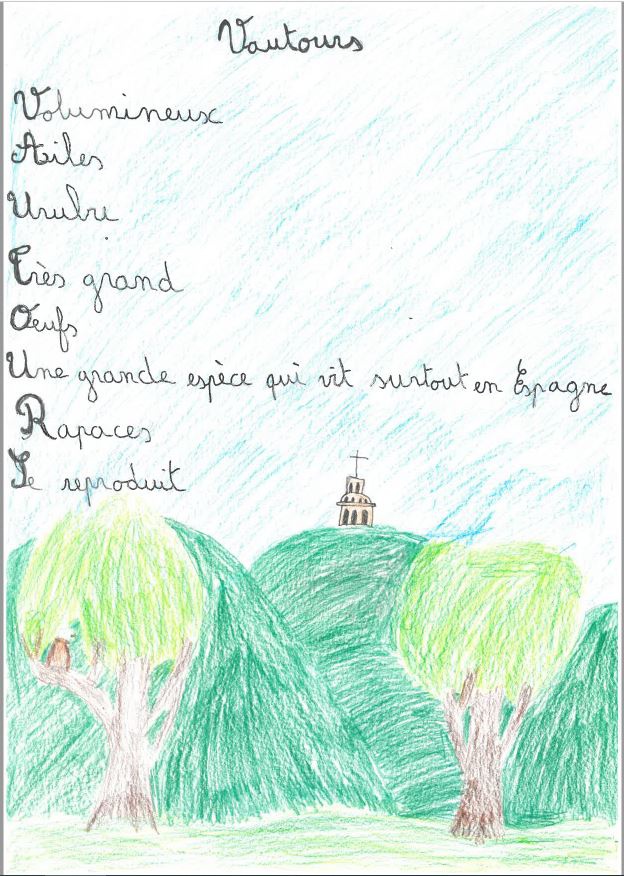 Vautours
Volumineux
Ailes
Urubu
Très grand
Œufs
Une grande espèce qui vit surtout en Espagne
Rapaces
Se reproduit